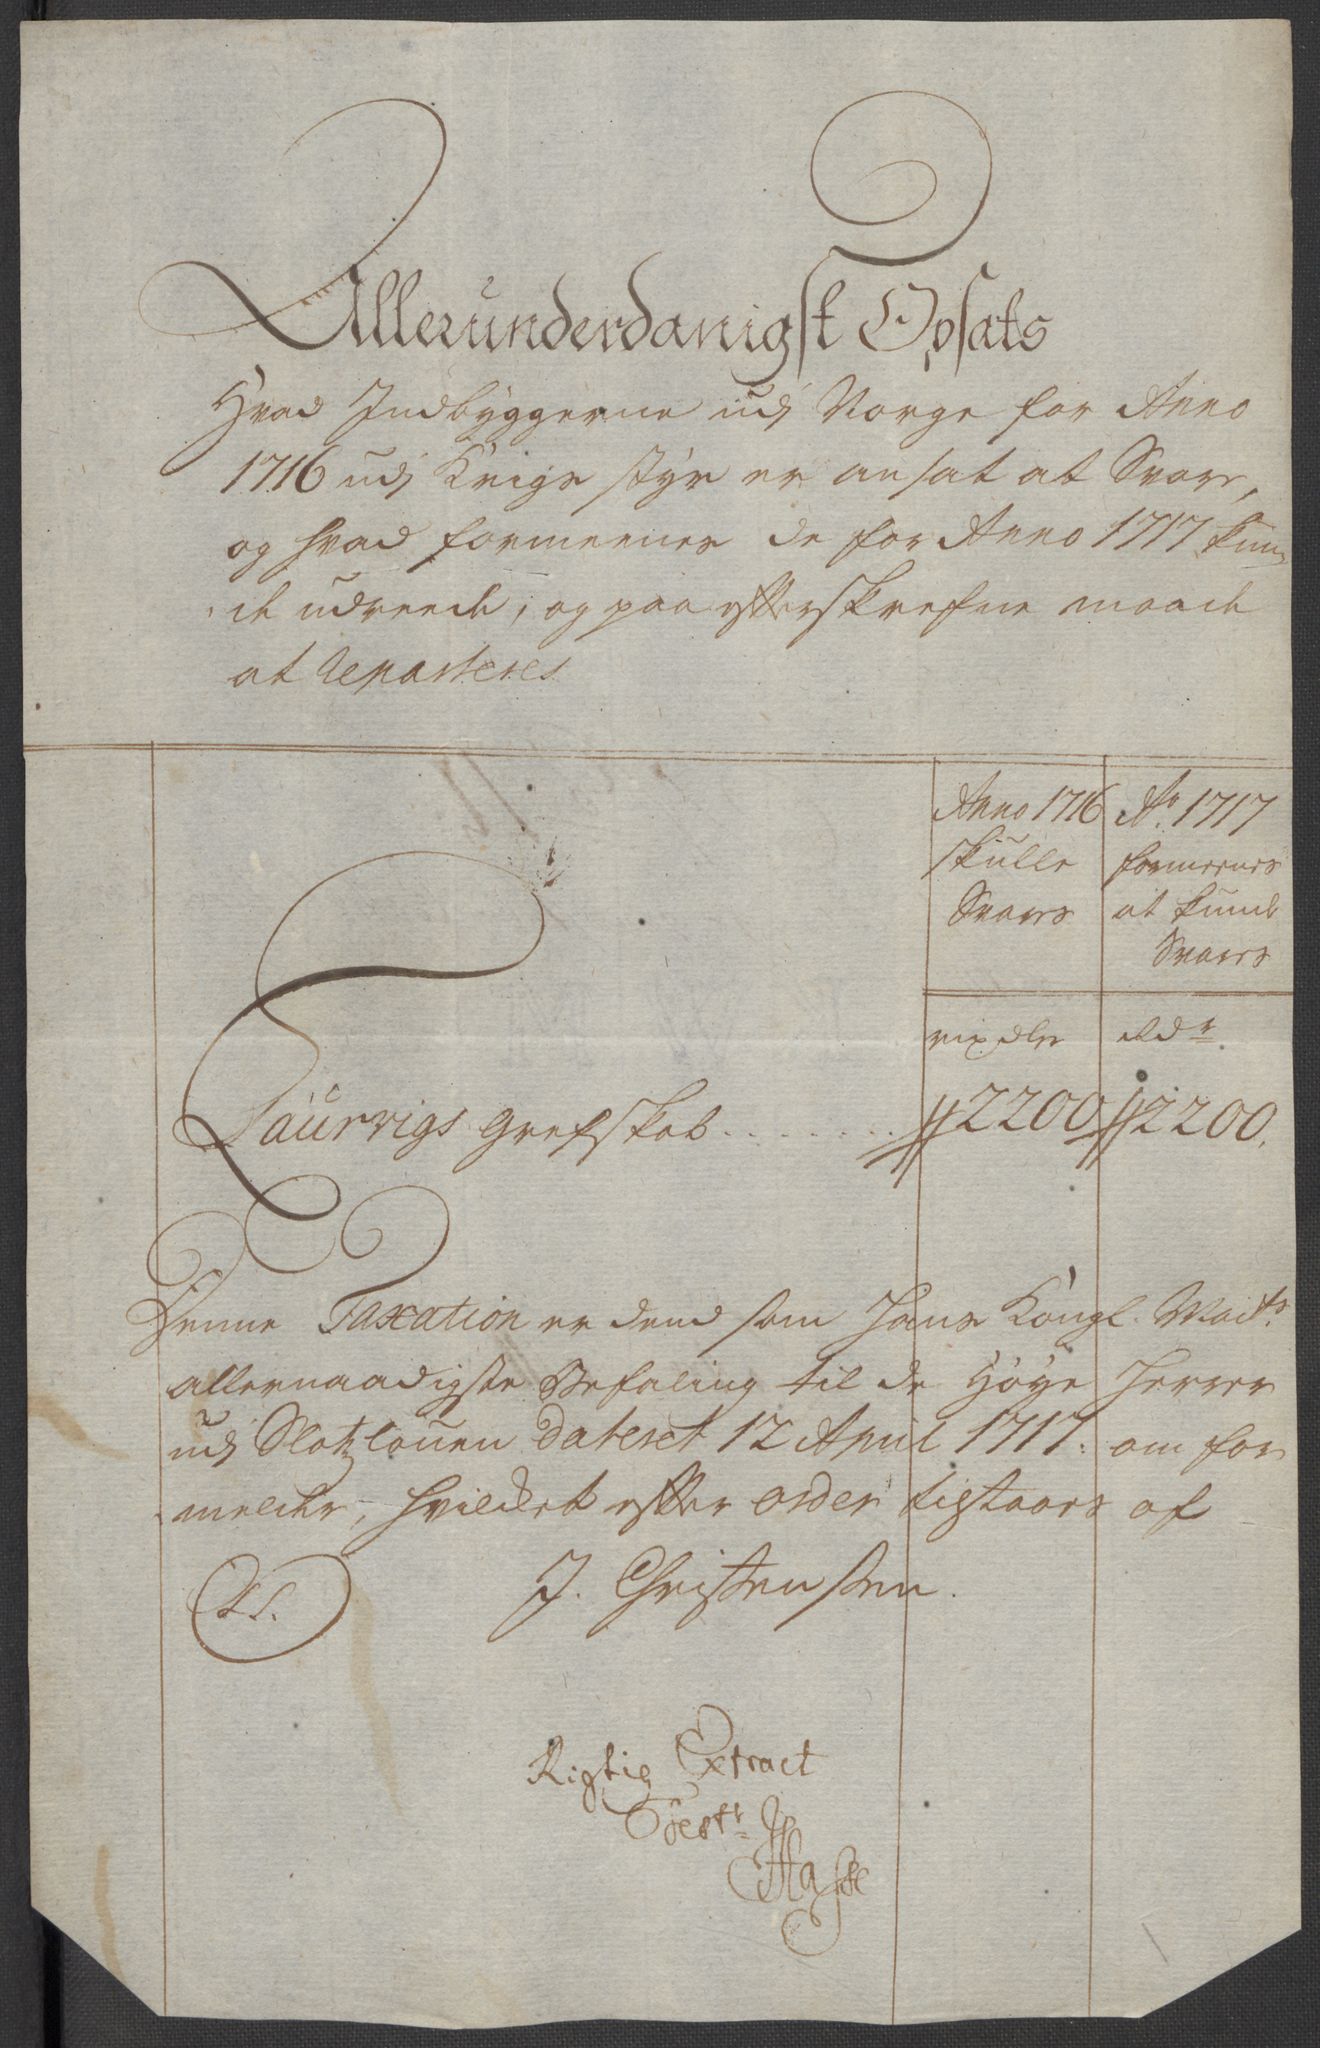 Allerunderdanigst Opsats
Hvad Indbyggerne udj Norge for Anno
1716 udj Krigs styr er ansat at Svare,
og hvad formeenes de for Anno 1717 kun-
de udreede, og paa efterskrefne maade
at Reparteres
Anno 1716
skulle
Svares
Ao. 1717
formeenes
at kunde
Svares
rixdlr
Rdr
Laurvigs Grefskab ........ 2200 2200.
Denne Taxation er dend som Hans Kongl. Maits.
allernaadigste Befaling til de Høye Herrer
udj Slotzlouen dateret 12 April 1717. om for
melder, hvilket efter order tilstaaes af
LS. J. Christensen.
Rigtig Extract
Testr
Hasse